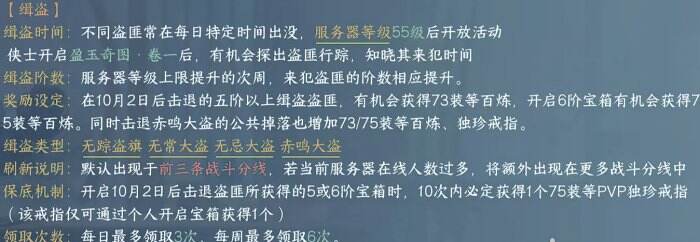 【缉盗】
缉盗时间：不同盗匪常在每日特定时间出没，服务器等级55级后开放活动
侠士开启盈玉奇图·卷一后，有机会探出盗匪行踪，知晓其来犯时间
缉盗阶数：服务器等级上限提升的次周，来犯盗匪的阶数相应提升。
奖励设定：在10月2日后击退的五阶以上缉盗盗匪，有机会获得73装等百炼，开启6阶宝箱有机会获得7
5装等百炼。同时击退赤鸣大盗的公共掉落也增加73/75装等百炼、独珍戒指。
缉盗类型：无踪盗旗 无常大盗 无忌大盗 赤鸣大盗
刷新说明：默认出现于前三条战斗分线，若当前服务器在线人数过多，将额外出现在更多战斗分线中
保底机制：开启10月2日后击退盗匪所获得的5或6阶宝箱时，10次内必定获得1个75装等PVP独珍戒指
（该戒指仅可通过个人开启宝箱获得1个）
领取次数：每日最多领取3次，每周最多领取6次。